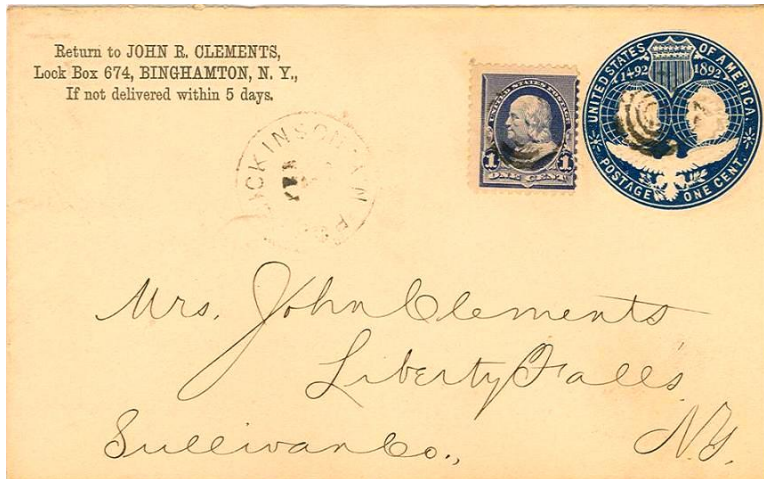 Return to JOHN R. CLEMENTS,
Lock Box 674, BINGHAMTON, N. Y.,
If not delivered within 5 days.
UNITED STATES POSTAGE
1 1
ONE CENT
UNITED STATES OF AMERICA.
1492 1892
POSTAGE ONE CENT.
CKINSON
Mrs. John Clements
Liberty Falls
Sullivan Co.,
N.Y.